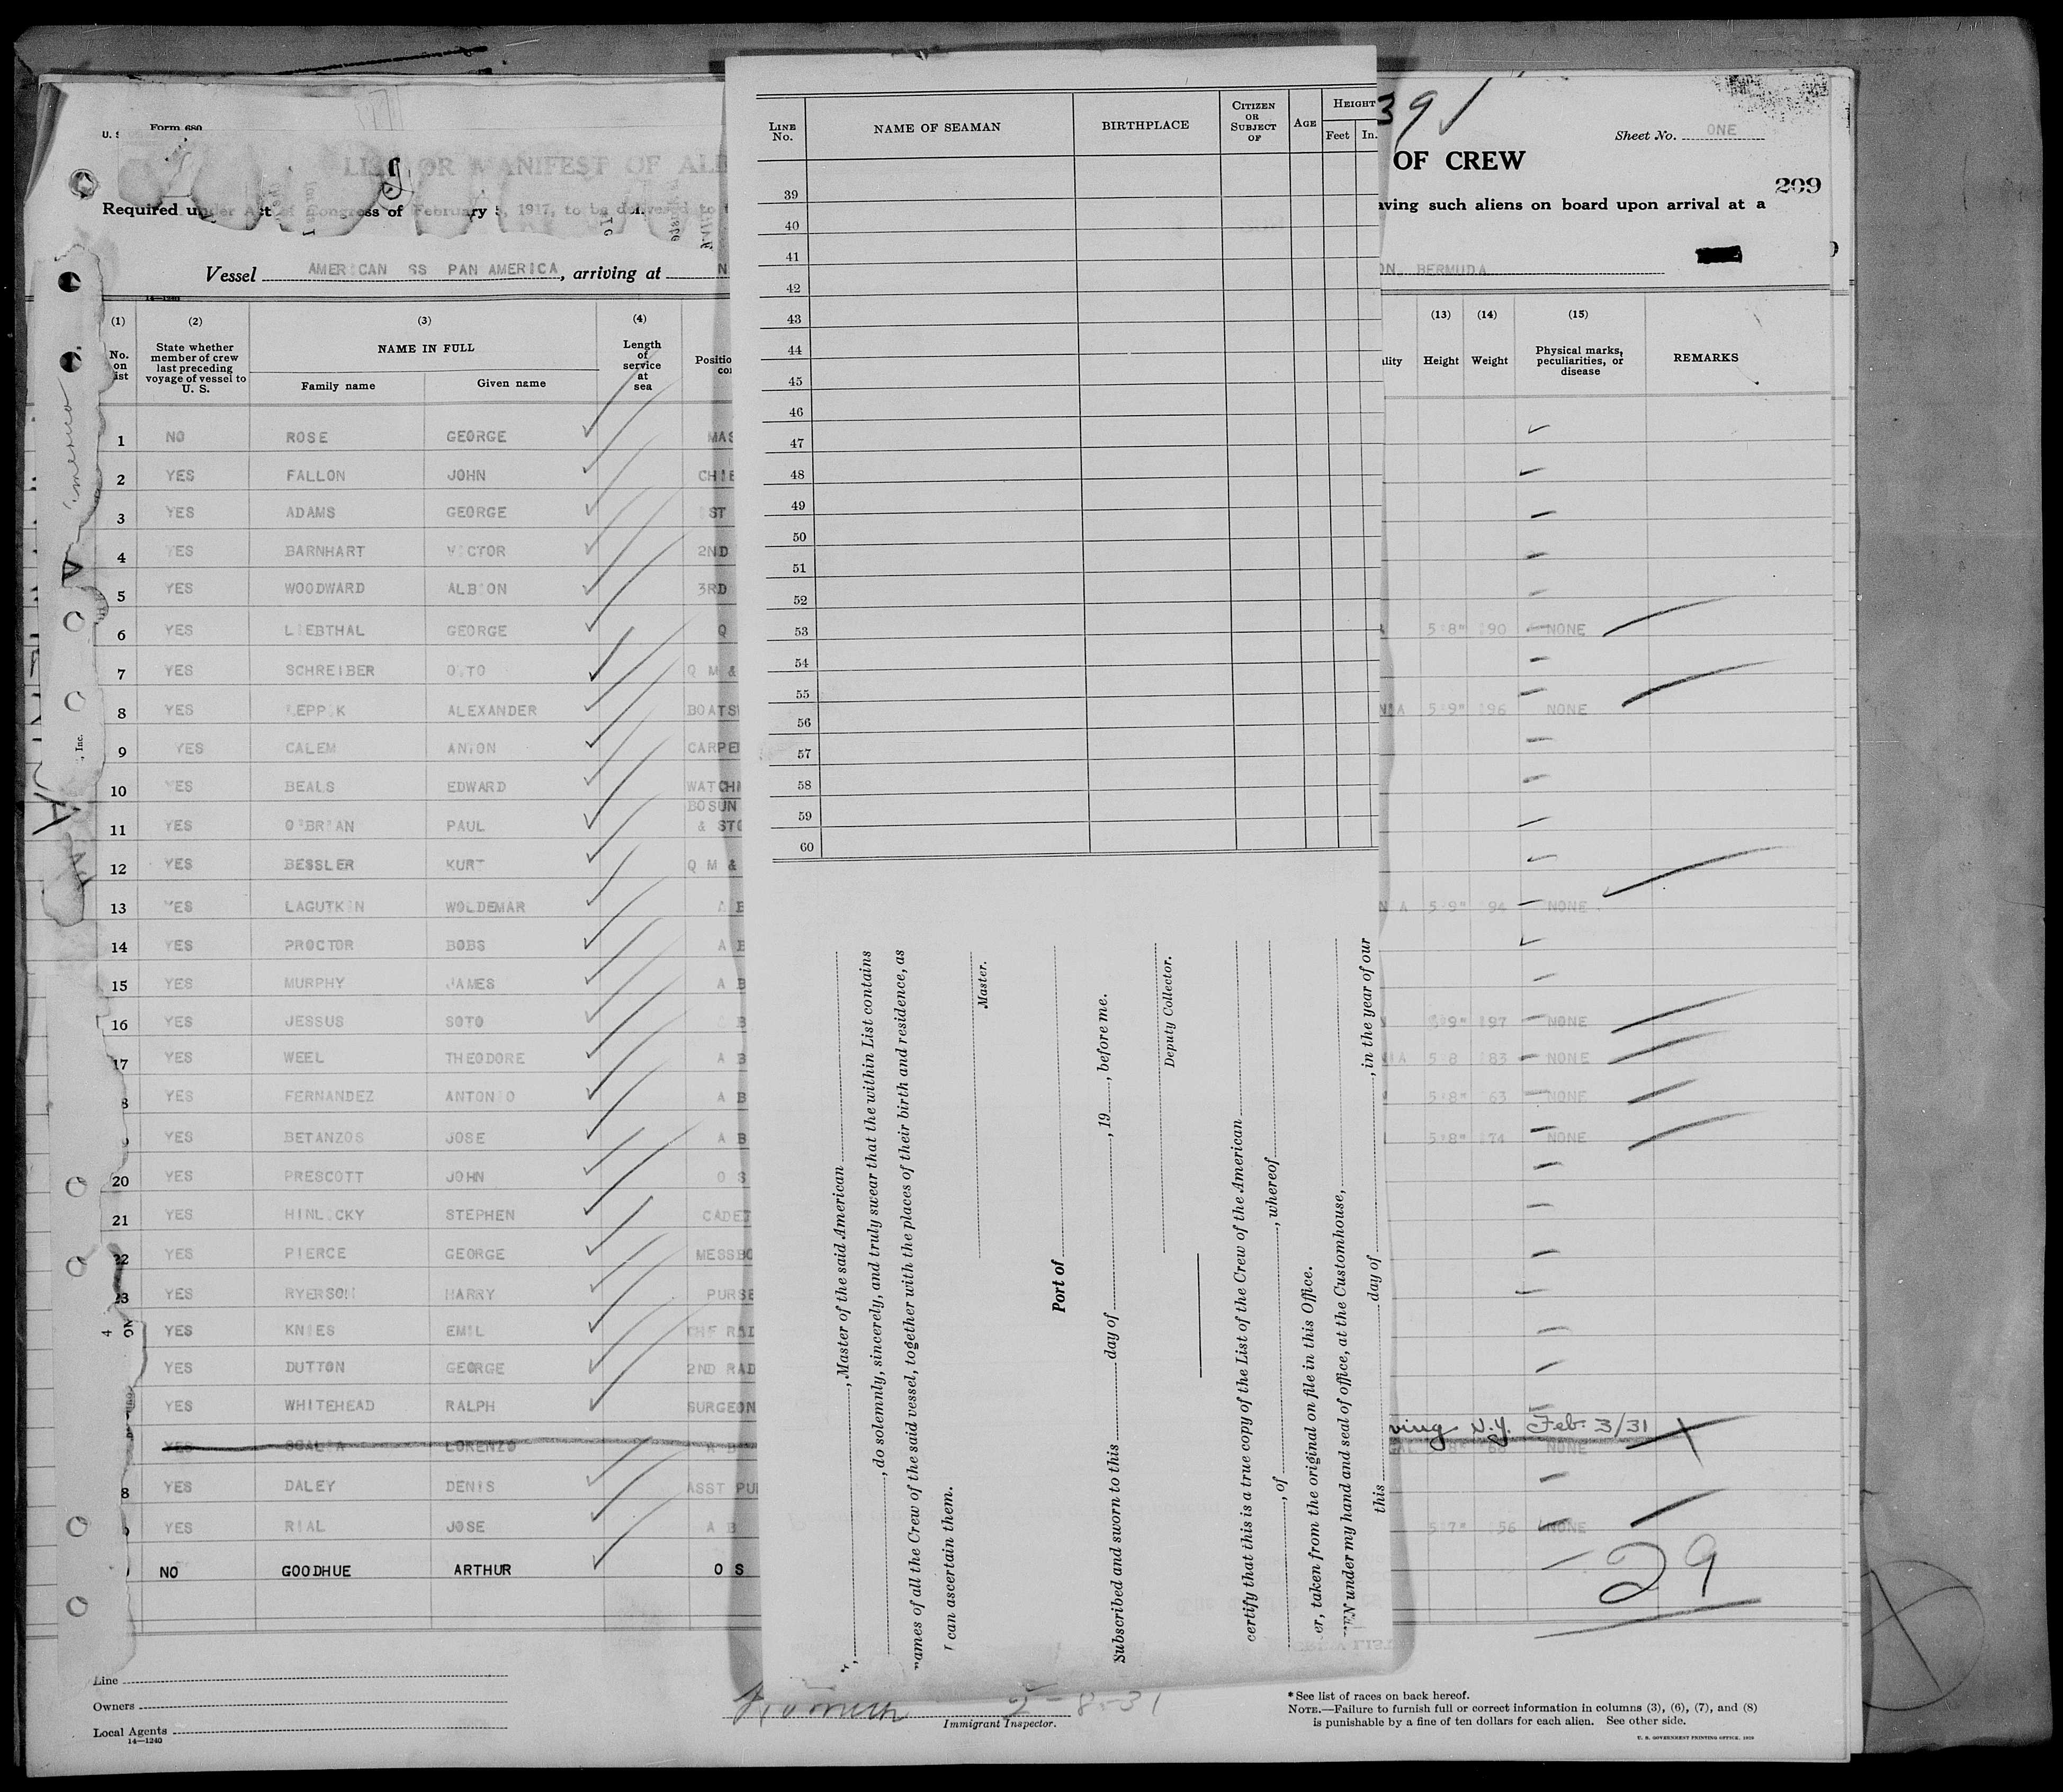 Form 680
391
Sheet No. ONE
OF ALI
OF CREW
209
Required under Act of Congress of February 5, 1917, to be delivered to
aving such aliens on board upon arrival at a
Vessel AMERICAN SS PAN AMERICA, arriving at N
ON, BERMUDA
(1) (2) (3) (4) (13) (14) (15)
No. on list
State whether member of crew last preceding voyage of vessel to U. S.
NAME IN FULL
Family name Given name
Length of service at sea
Height Weight
Physical marks, peculiarities, or disease
REMARKS
1 NO ROSE GEORGE MAS
2 YES FALLON JOHN CHIE
3 YES ADAMS GEORGE ST
4 YES BARNHART VICTOR 2ND
5 YES WOODWARD ALBION 3RD
6 YES LIEBTHAL GEORGE Q 5'8" 190 NONE
7 YES SCHREIBER OTTO Q M &
8 YES ALEXANDER BOATS 5'9" 196 NONE
9 YES CALEM ANTON CARPE
10 YES BEALS EDWARD WATCH
11 YES O'BRIAN PAUL BOSUN & STO
12 YES BESSLER KURT Q M &
13 YES LAGUTKIN WOLDEMAR A B 5'9" 194 NONE
14 YES PROCTOR BOBS A B
15 YES MURPHY JAMES A B
16 YES JESSUS SOTO B 5'9" 197 NONE
17 YES WEEL THEODORE A B 5 8 183 NONE
8 YES FERNANDEZ ANTONIO A B 5'8" 163 NONE
YES BETANZOS JOSE A B 5'8" 174 NONE
20 YES PRESCOTT JOHN O S
21 YES STEPHEN CADET
22 YES PIERCE GEORGE MESSBO
23 YES RYERSON HARRY PURSE
4 YES KNIES EMIL CHF RAD
YES DUTTON GEORGE 2ND RAD
YES WHITEHEAD RALPH SURGEON
ving N.Y. Feb. 3/31
YES LORENZO NONE
8 YES DALEY DENIS ASST PU
YES RIAL JOSE A B 5'7" 156 NONE
NO GOODHUE ARTHUR O S
29
Line
Owners
Local Agents
14—1240
2-8-31
Immigrant Inspector.
* See list of races on back hereof.
NOTE.—Failure to furnish full or correct information in columns (3), (6), (7), and (8)
is punishable by a fine of ten dollars for each alien. See other side.
U. S. GOVERNMENT PRINTING OFFICE
LINE No. NAME OF SEAMAN BIRTHPLACE CITIZEN OR SUBJECT OF AGE HEIGHT
Feet In.
39
40
41
42
43
44
45
46
47
48
49
50
51
52
53
54
55
56
57
58
59
60
, Master of the said American
, do solemnly, sincerely, and truly swear that the within List contains
names of all the Crew of the said vessel, together with the places of their birth and residence, as
I can ascertain them.
Master.
Port of
Subscribed and sworn to this day of , 19 , before me.
Deputy Collector.
certify that this is a true copy of the List of the Crew of the American
, of , whereof
er, taken from the original on file in this Office.
EN under my hand and seal of office, at the Customhouse,
this day of , in the year of our